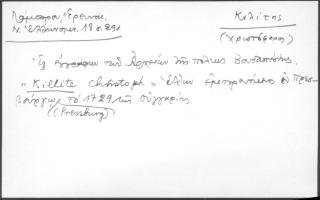 Λάμπρου, Ἔρευναι,
Ν. Ἑλληνομν. 18 σ. 291
Κιλίτης
(Χριστόφορος)
Ἐξ ἐγγράφων τοῦ Ἀρχείου τῆς πόλεως Βουδαπέστης.
"Killite Christoph" Ἕλλην ἐμπορευόμενος ἐν Πρεσ-
βούργῳ τὸ 1729 τῆς Οὑγγαρίας.
(Pressburg)